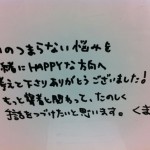 のつまらない悩みを
緒にHAPPYな方向へ
考えて下さりありがとうございました!
もっと 者と関わって、たのしく
をつづけたいと思います。くま